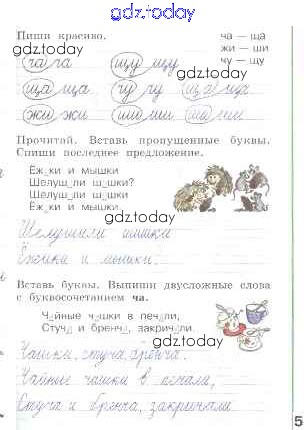 gdz.today
Пиши красиво. ча — ща
gdz.today жи — ши
чу — щу
ча га щу щу
gdz.today
ща ща чу чу ща ща
жи жи ши ши ши ши
Прочитай. Вставь пропущенные буквы.
Спиши последнее предложение.
Ёж_ки и мышки
Шелуш_ли ш_шки?
Шелуш_ли ш_шки
Ёж_ки и мышки.
gdz.today
Шелушили шишки
Ёжики и мышки.
gdz.today
Вставь буквы. Выпиши двусложные слова
с буквосочетанием ча.
Ч_йные чашки в печ_ли,
Стуч_ и бренч_, закрич_ли.
gdz.today
Чашки, стуча, бренча.
Чайные чашки в печали,
Стуча и бренча, закричали.
gdz.today
5